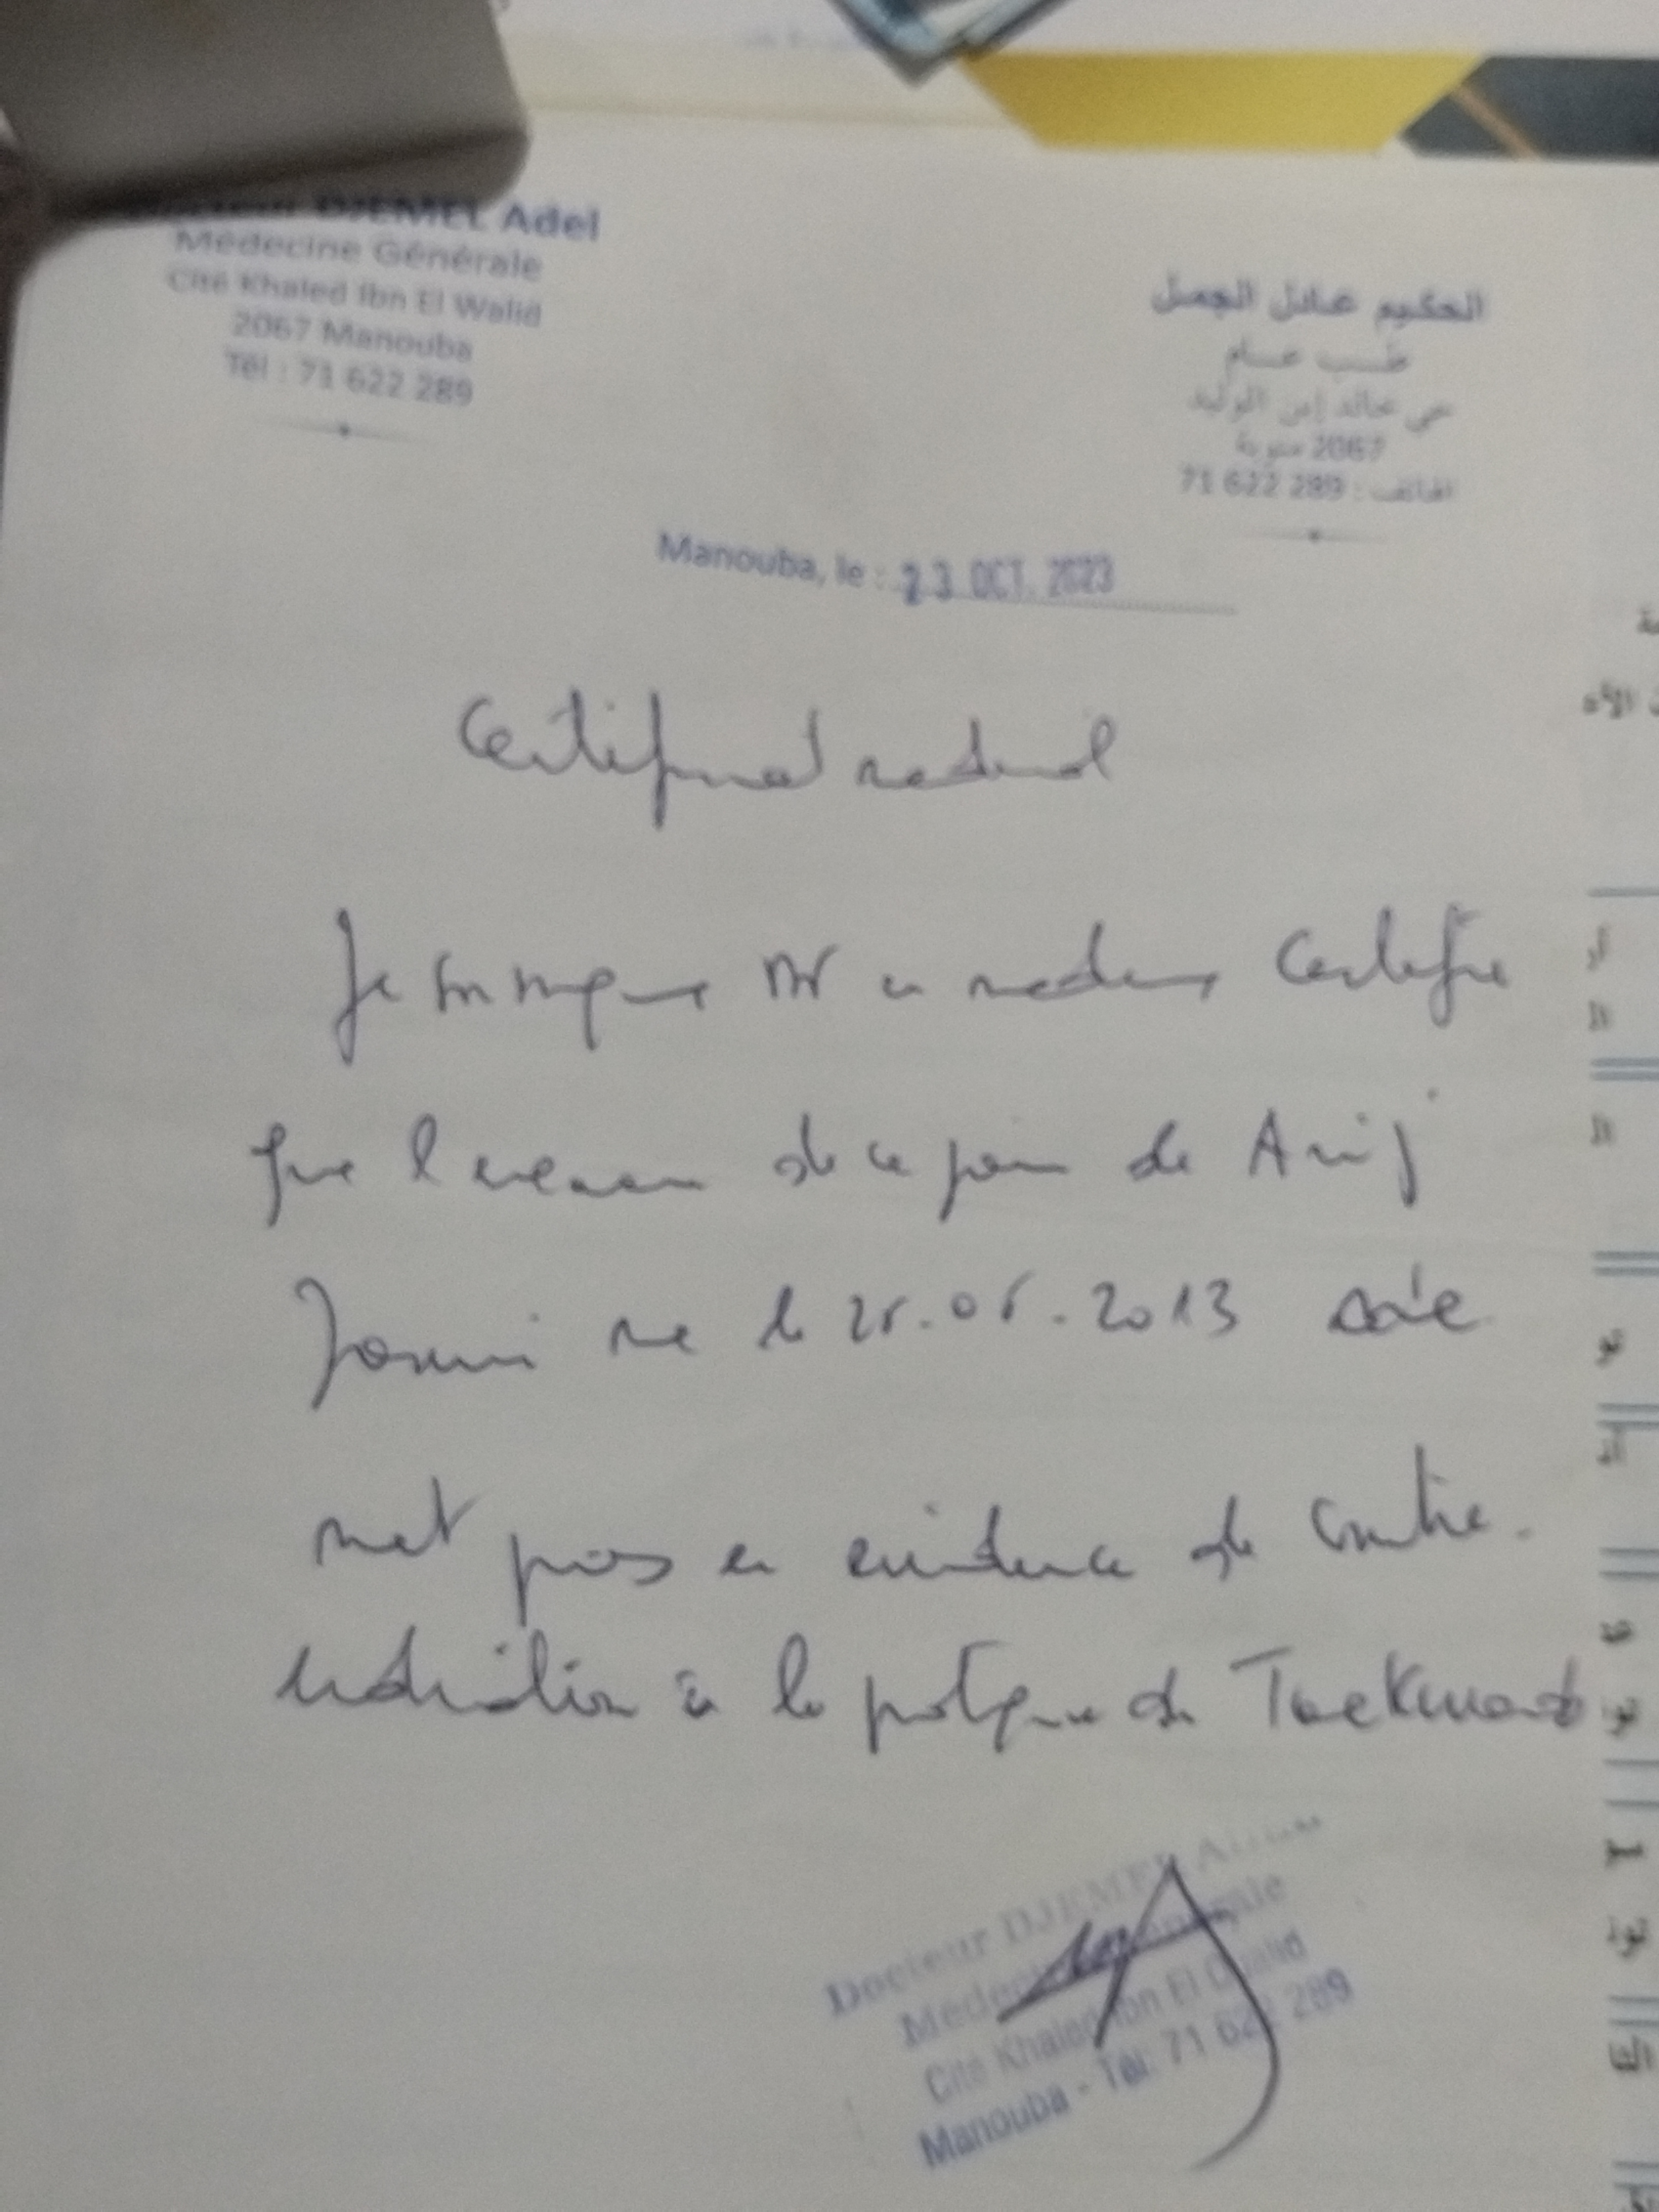 DJEMEL Adel
Médecine Générale
Cité Khaled Ibn El Walid
2067 Manouba
Tél : 71 622 289
الحكيم عادل الجمل
طب عام
حي خالد إبن الوليد
2067 منوبة
الهاتف : 71 622 289
Manouba, le : 23 OCT. 2023
Certificat medical
Je soussigné Dr en medecine Certifie
que l'examen de ce jour de Arij
ne le 2013
met pas en evidence de contre-
indication à la pratique du Taekwondo
Docteur DJEMEL
Médecine Générale
Cité Khaled Ibn El Oualid
Manouba - Tél: 71 622 289